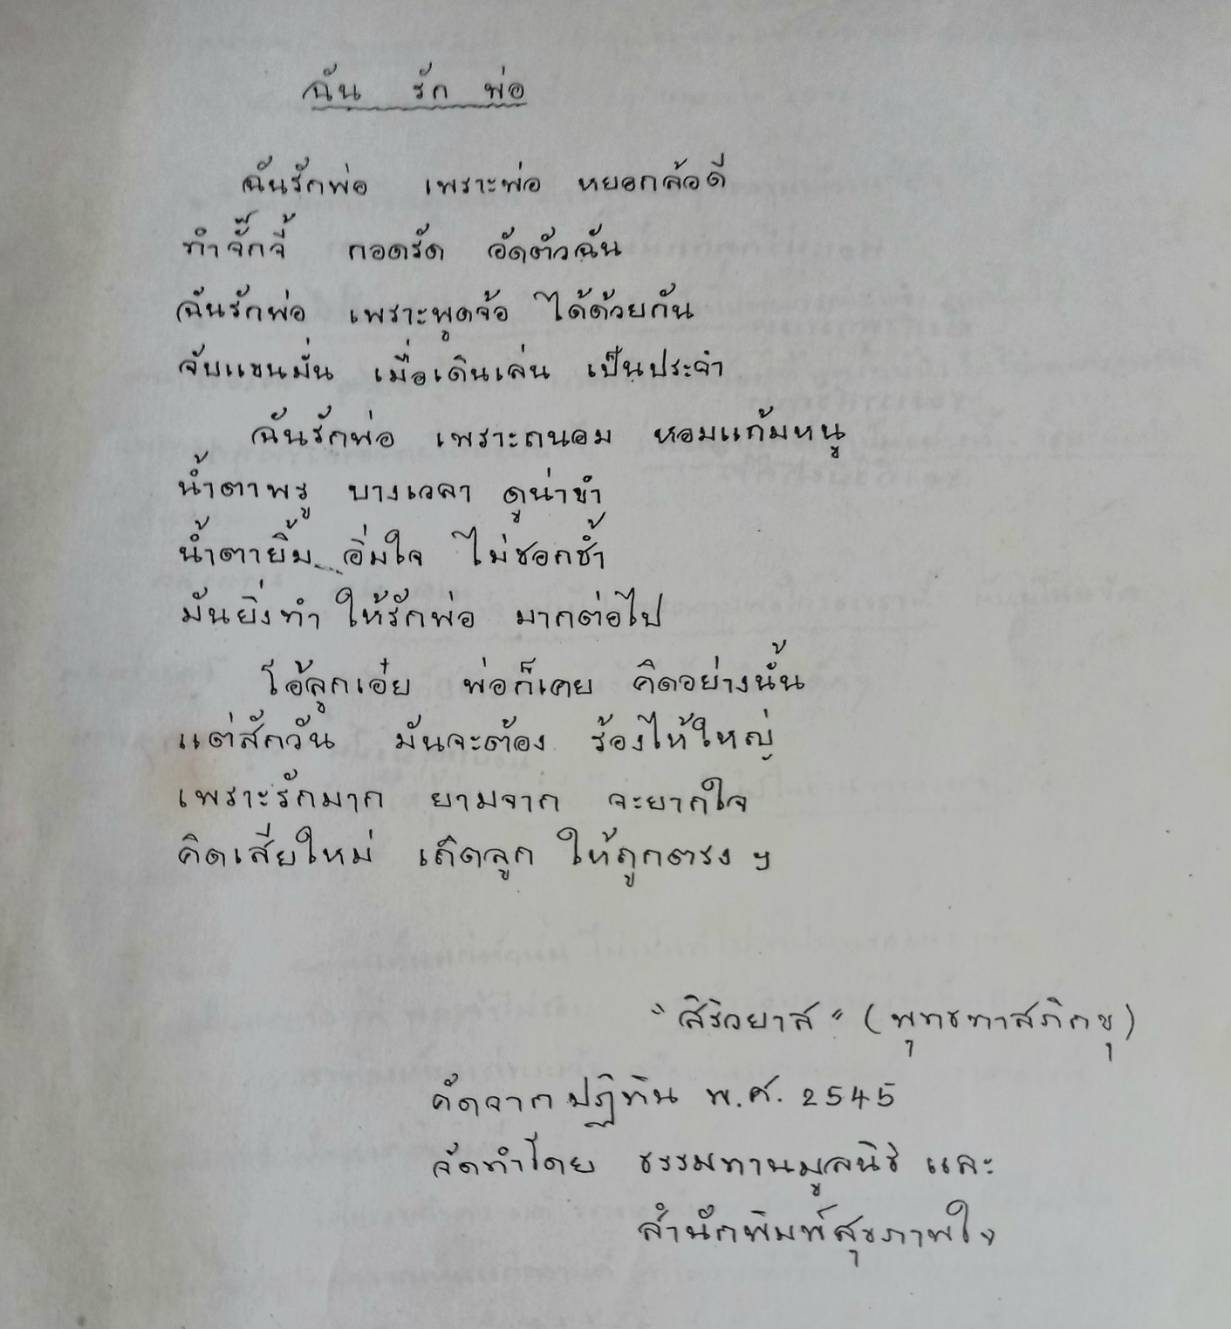 ฉัน รัก พ่อ
ฉันรักพ่อ เพราะพ่อ หยอกล้อดี
ทำจั๊กจี้ กอดรัด อัดตัวฉัน
ฉันรักพ่อ เพราะพูดจ้อ ได้ด้วยกัน
จับแขนมั่น เมื่อเดินเล่น เป็นประจำ
ฉันรักพ่อ เพราะถนอม หอมแก้มหนู
น้ำตาพรู บางเวลา ดูน่าขำ
น้ำตายิ้ม อิ่มใจ ไม่ชอกช้ำ
มันยิ่งทำ ให้รักพ่อ มากต่อไป
โอ้ลูกเอ๋ย พ่อก็เคย คิดอย่างนั้น
แต่สักวัน มันจะต้อง ร้องไห้ใหญ่
เพราะรักมาก ยามจาก จะยากใจ
คิดเสียใหม่ เถิดลูก ให้ถูกตรง ฯ
"สิริวยาส" (พุทธทาสภิกขุ)
คัดจากปฏิทิน พ.ศ. 2545
จัดทำโดย ธรรมทานมูลนิธิ และ
สำนักพิมพ์สุขภาพใจ